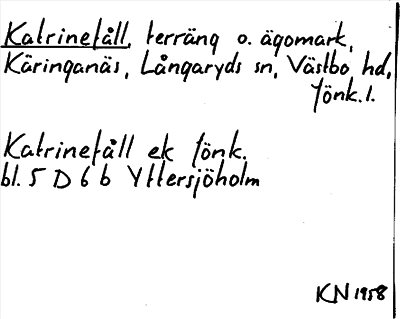 Katrinefåll, terräng o. ägomark,
Käringanäs, Långaryds sn, Västbo hd,
Jönk. l.
Katrinefåll ek Jönk.
bl. 5 D 6 b Yttersjöholm
KN 1958